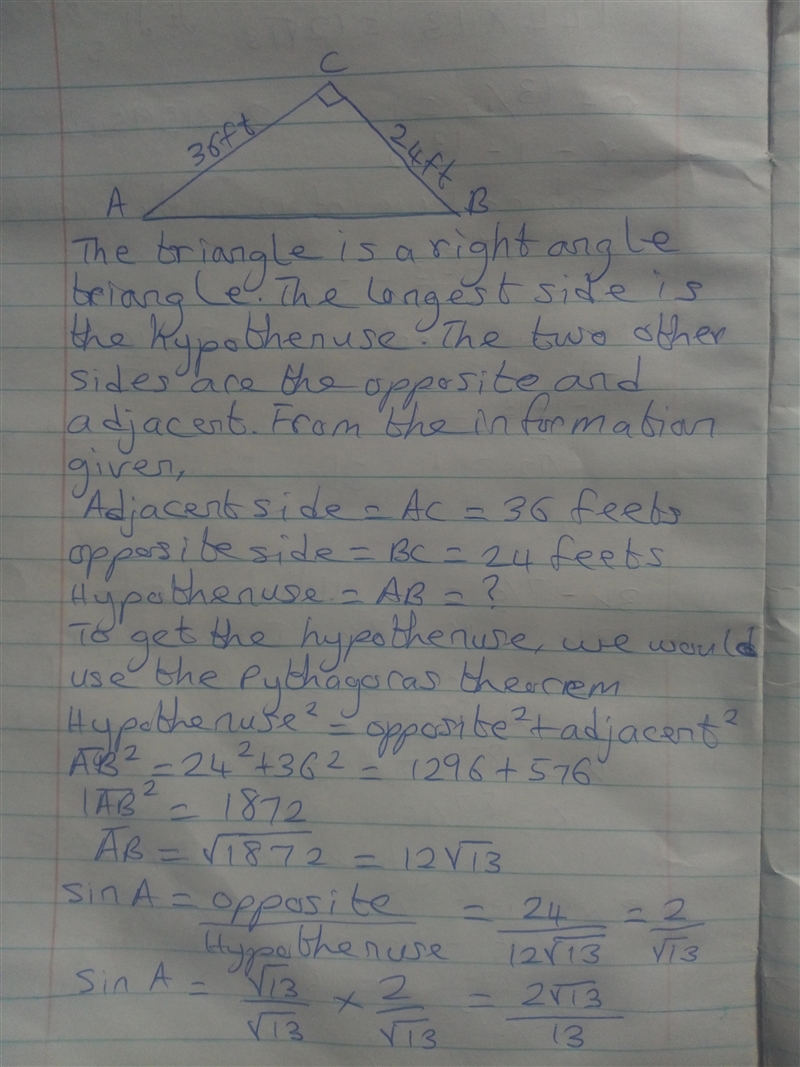 C
36ft
24ft
A
B
The triangle is a right angle
triangle. The longest side is
the hypothenuse. The two other
sides are the opposite and
adjacent. From the information
given,
Adjacent side = AC = 36 feets
opposite side = BC = 24 feets
Hypothenuse = AB = ?
To get the hypothenuse, we would
use the Pythagoras theorem
Hypothenuse² = opposite² + adjacent²
AB² = 24² + 36² = 1296 + 576
AB² = 1872
AB = √1872 = 12√13
sin A = opposite/Hypothenuse = 24/12√13 = 2/√13
sin A = √13/√13 × 2/√13 = 2√13/13